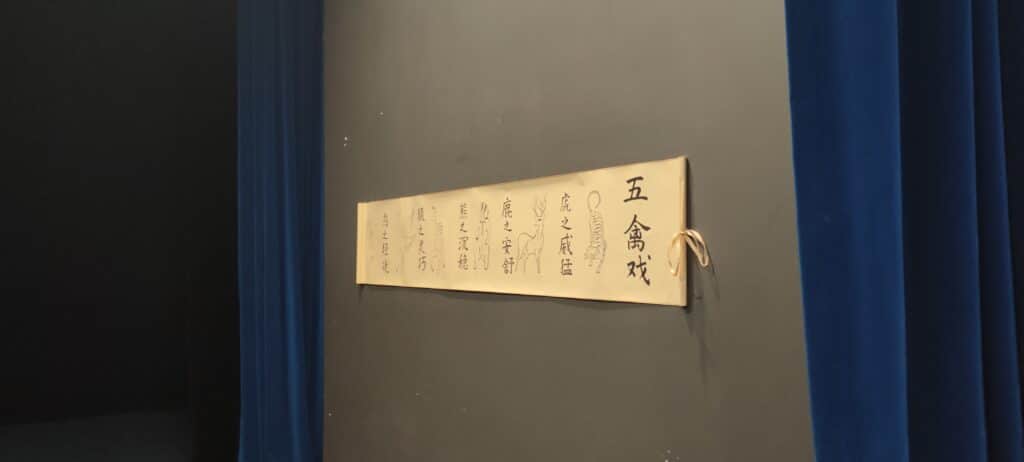 五禽戏
虎之威猛
鹿之安舒
熊之沉稳
猿之灵巧
鸟之轻捷